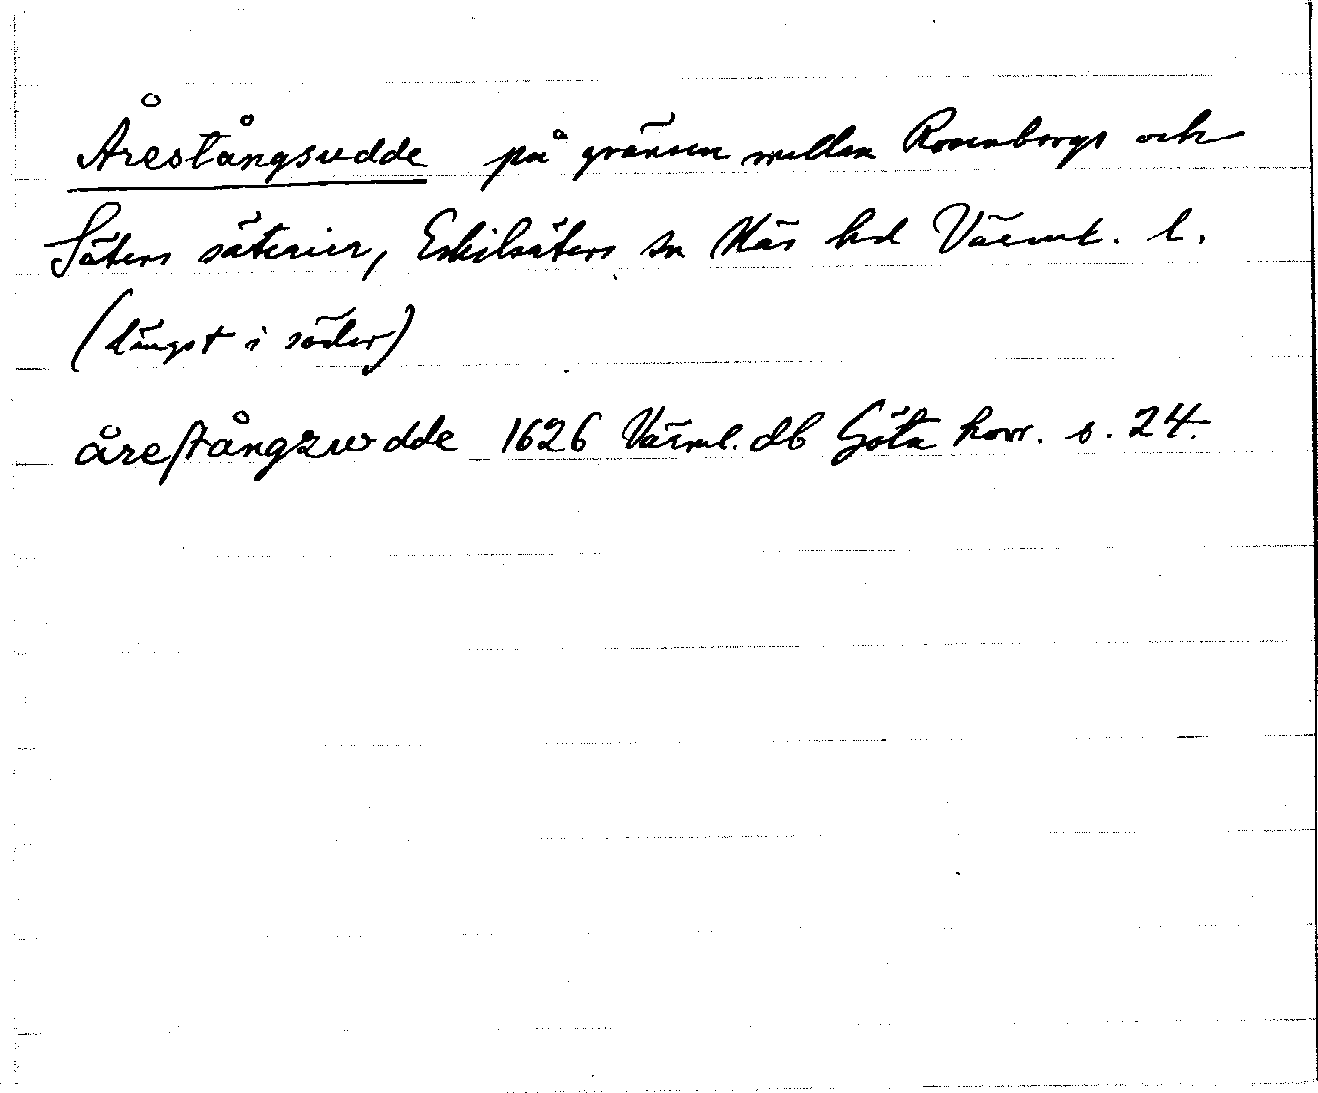 Årestångsudde på gränsen mellan Rosenborgs och
Säters säterier, Eskilsäters sn Näs hd Värml. l.
(längst i söder)
åreſtångzudde 1626 Värml. db Göta hovr. s. 24.